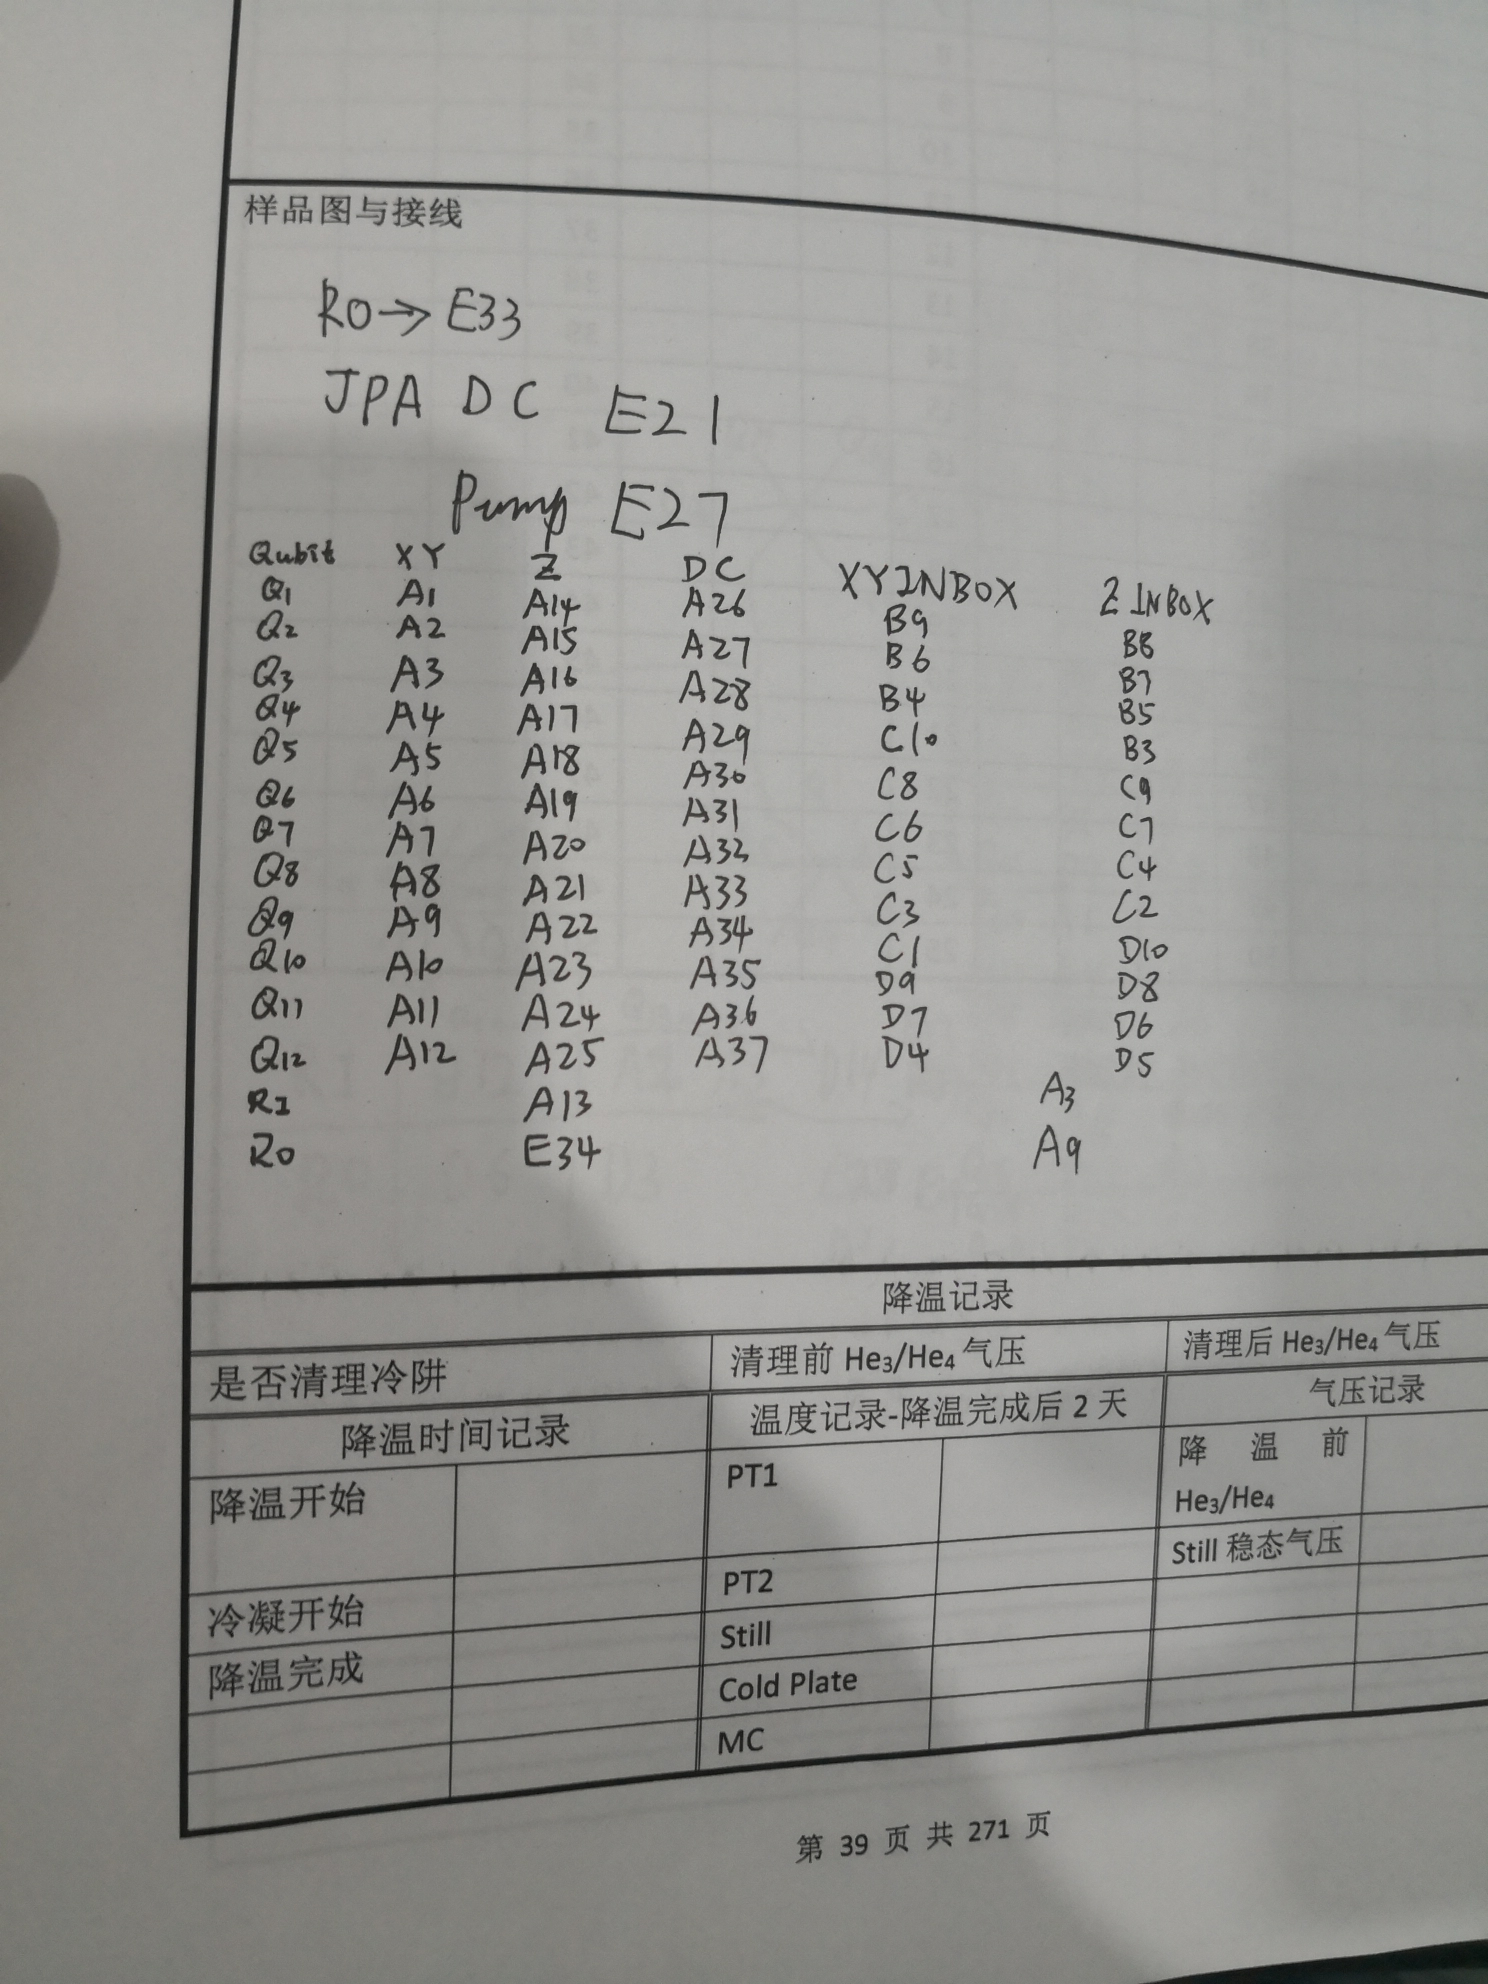 样品图与接线
R0→E33
JPA DC E21
Pump E27
Qubit XY Z DC XYINBOX Z INBOX
Q1 A1 A14 A26 B9 B8
Q2 A2 A15 A27 B6 B7
Q3 A3 A16 A28 B4 B5
Q4 A4 A17 A29 C10 B3
Q5 A5 A18 A30 C8 C9
Q6 A6 A19 A31 C6 C7
Q7 A7 A20 A32 C5 C4
Q8 A8 A21 A33 C3 C2
Q9 A9 A22 A34 C1 D10
Q10 A10 A23 A35 D9 D8
Q11 A11 A24 A36 D7 D6
Q12 A12 A25 A37 D4 D5
RI A13 A3
RO E34 A9
降温记录
是否清理冷阱 清理前 He₃/He₄ 气压 清理后 He₃/He₄ 气压
降温时间记录 温度记录-降温完成后 2 天 气压记录
降温开始 PT1 降 温 前
He₃/He₄
冷凝开始 PT2 Still 稳态气压
降温完成 Still
Cold Plate
MC
第 39 页 共 271 页